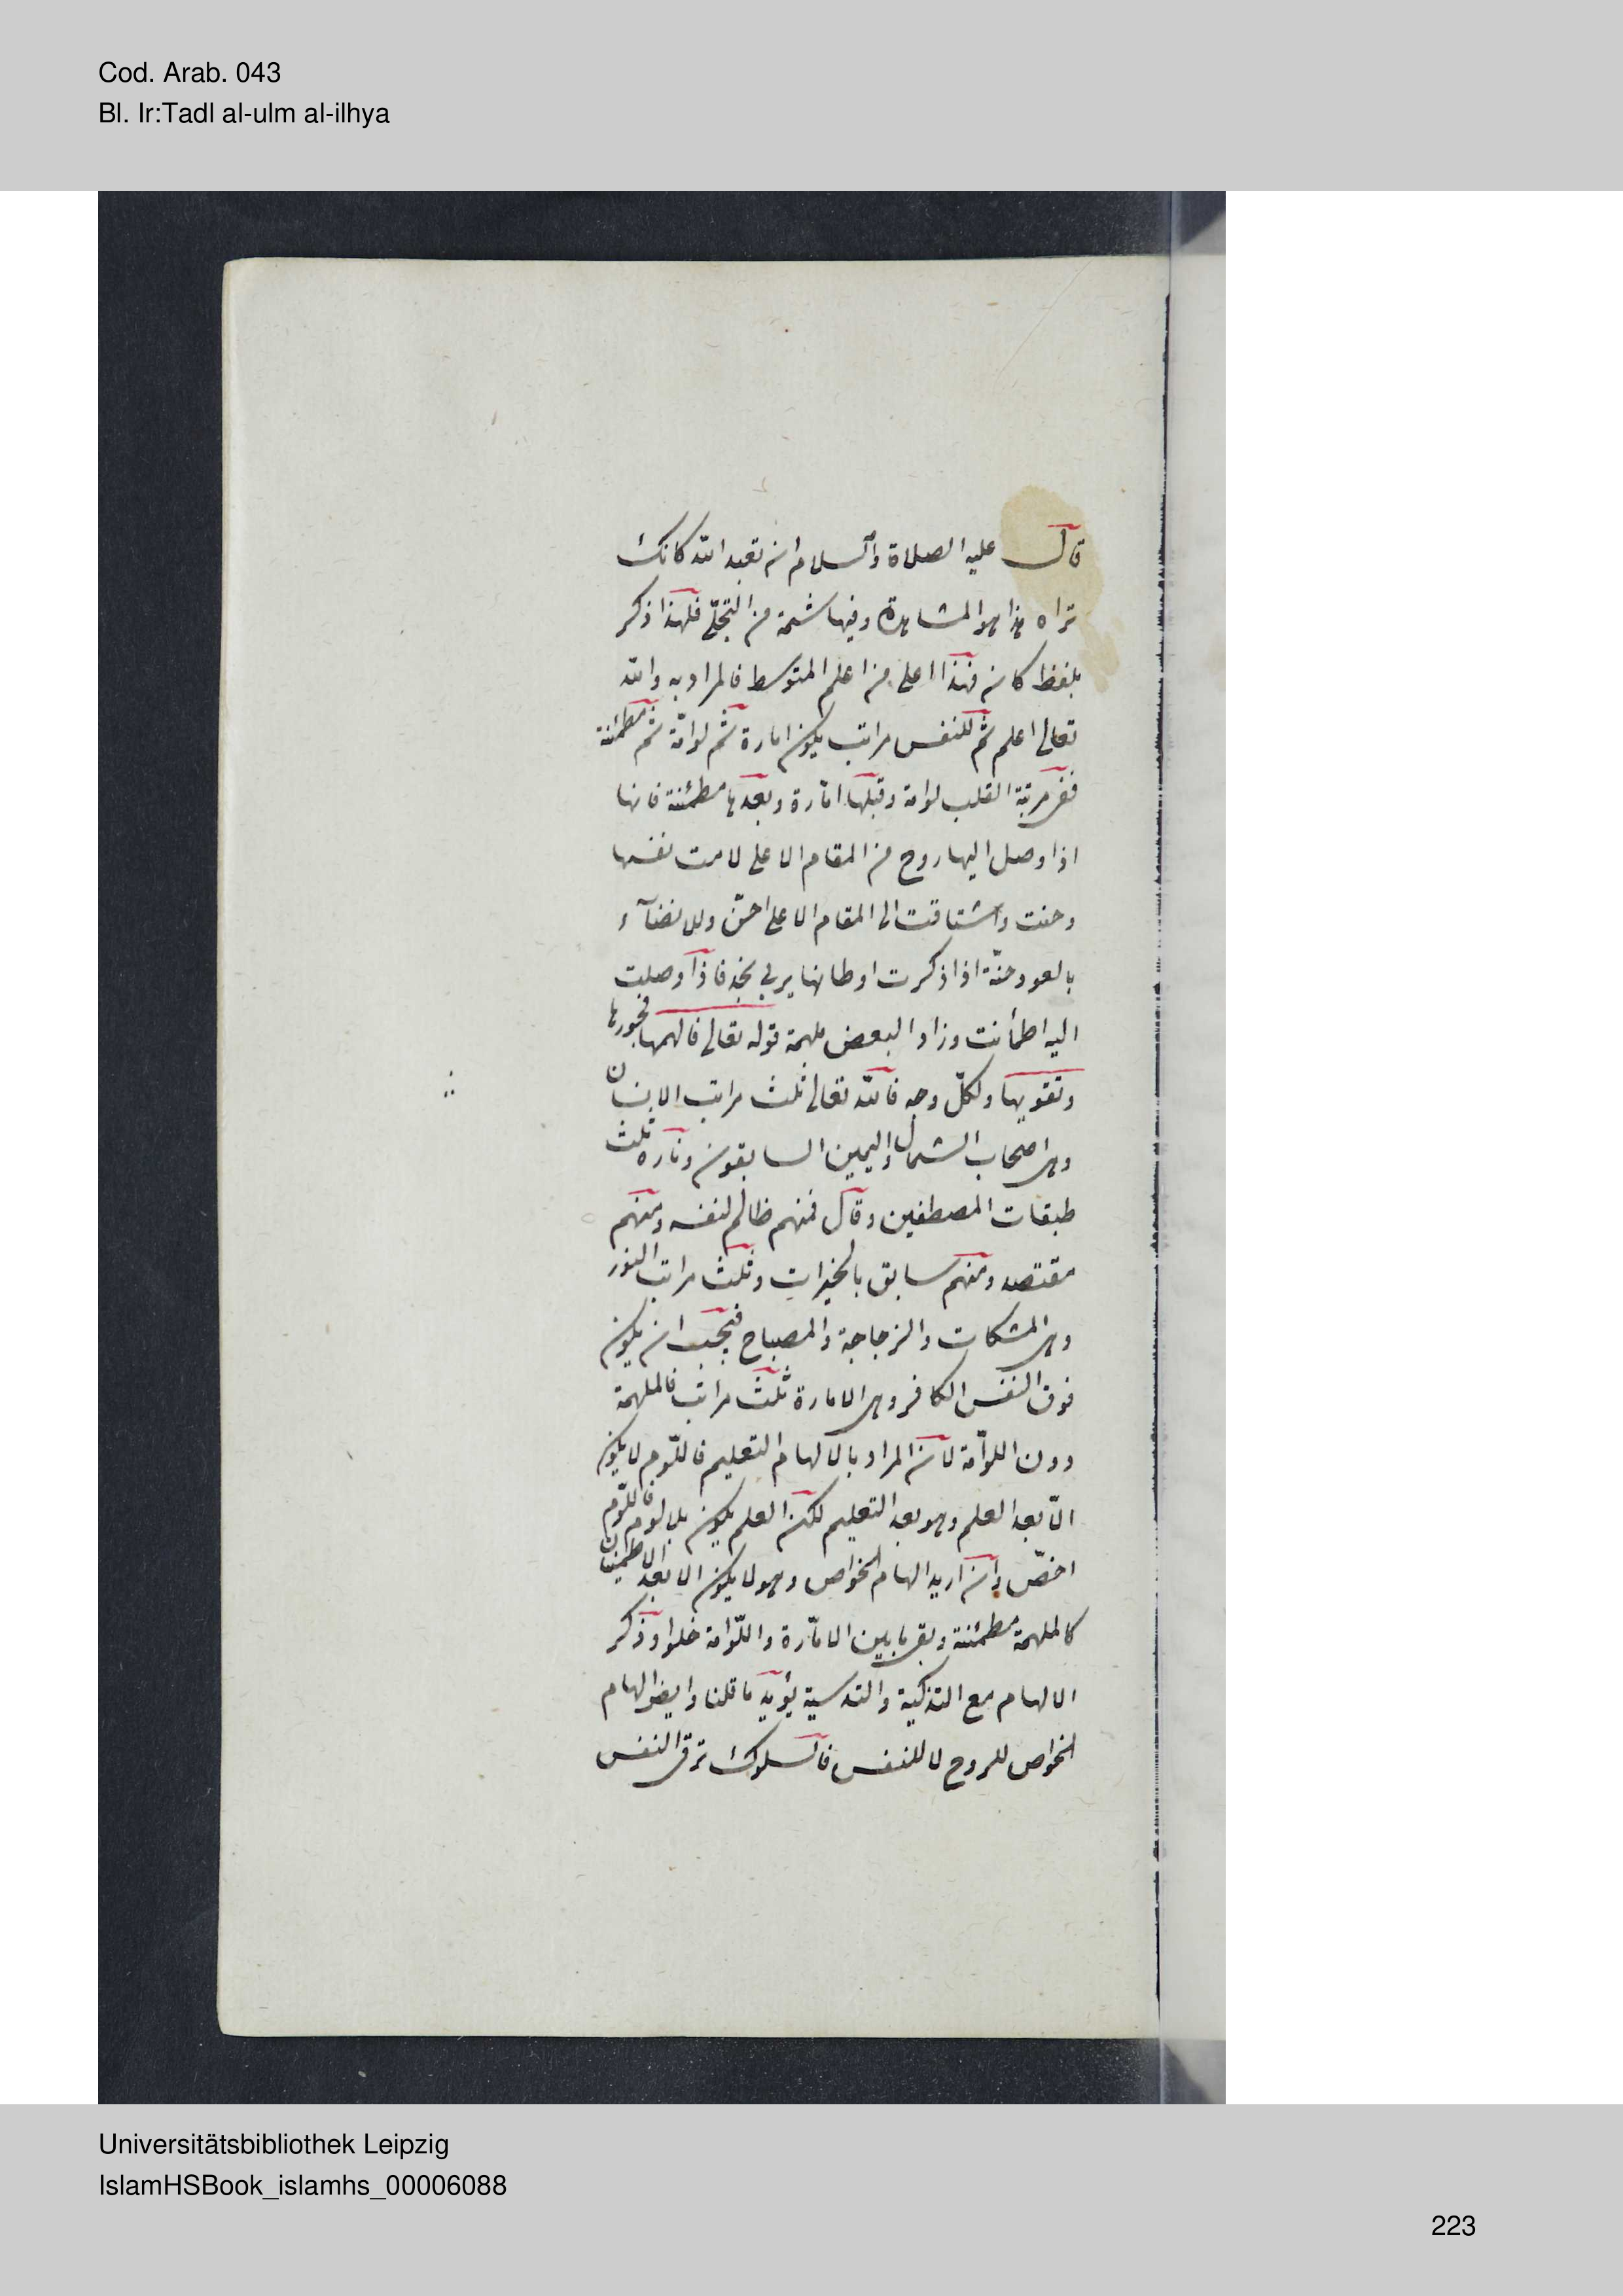 Cod. Arab. 043
Bl. Ir:Tadl al-ulm al-ilhya
قال عليه الصلاة والسلام ان تعبد الله كانك
تراه هذا هو المشاهدة وفيها شمة من التجلّي فلهذا ذكر
بلفظ كان فهذا اعلى من اعلم المتوسط فالمراد به والله
تعالى اعلم ثم للنفس مراتب يكون امارة ثم لوامّة ثم مطمئنة
ففي مرتبة القلب لوامة وقبلها امّارة وبعدها مطمئنة فانها
اذا وصل اليها روح من المقام الاعلى لامت نفسها
وحنت واشتاقت الى المقام الاعلى احنّ
بالعود حنّة اذا ذكرت اوطانها بربي نجد فاذا وصلت
اليه اطمأنت وزاد البعض ملهمة قوله تعالى فالهمها فجورها
وتقويها ولكلّ وجه فالله تعالى ثلث مراتب الانسان
وهي اصحاب الشمال واليمين السابقون وتارة ثلث
طبقات المصطفين وقال فمنهم ظالم لنفسه ومنهم
مقتصد ومنهم سابق بالخيرات وثلث مراتب النور
وهي المشكات والزجاجة والمصباح فيجب ان يكون
فوق النفس الكافر وهي الامارة ثلث مراتب فالملهمة
دون اللوّامة لان المراد بالالهام التعليم فاللّوم لا يكون
الّا بعد العلم وهو بعد التعليم لكن العلم يكون بلا لوم فاللّوم
اخصّ وان اريد الهام الخواص وهو لا يكون الا بعد الاطمينان
كالملهمة مطمئنة وبقي ما بين الامّارة واللّوامة خلوا وذكر
الالهام مع التذكية والتدسية يؤيد ما قلنا وايضا الهام
الخواص للروح لا للنفس فالسلوك ترقي النفس
Universitätsbibliothek Leipzig
IslamHSBook_islamhs_00006088
223